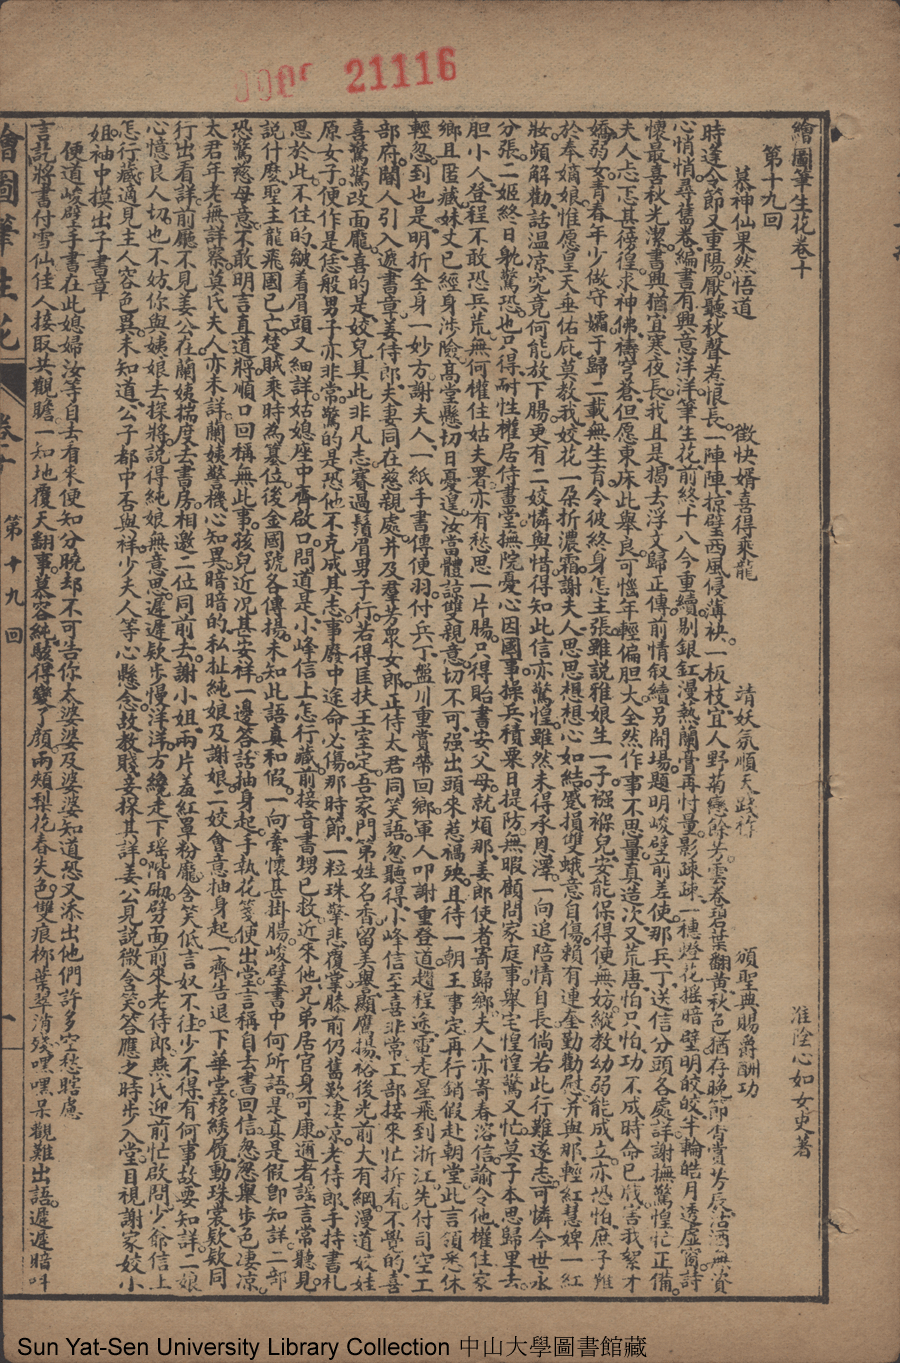 0005 21116
繪圖筆生花卷十
淮陰心如女史著
第十九回
慕神仙果然悟道 徵快婿喜得乘龍 靖妖氛順天踐祚 頒聖典賜爵酬功
時逢令節又重陽厭聽秋聲若恨長一陣陣掠壁西風侵薄袂一板枝宜人野菊戀餘芳雲卷碧葉翻黃秋色猶存晚節香賞芳辰沽酒無資
心悄悄尋舊卷編書有興意洋洋筆生花前終十八今重續剔銀釭漫熱蘭膏再忖量影疎疎一穗燈花搖暗壁明皎皎半輪皓月透虛窗詩
懷最喜秋光潔書興猶宜寒夜長我且是揭去浮文歸正傳前情叙續另開場題明峻壁前差使那兵丁送信分頭各處詳謝撫驚惶忙正備
夫人忐忑甚徬徨求神佛禱穹蒼但愿東床此舉良可惱年輕偏胆大全然作事不思量真造次又荒唐怕只怕功不成時命已戕害我絮才
嬌弱女青春年少做守孀于歸二載無生育令彼終身怎主張雖說雅娘生一子襁褓兒安能保得便無妨縱教幼弱能成立亦恐怕庶子難
於奉嫡娘惟愿皇天垂佑庇莫教我姣花一朶折濃霜謝夫人思思想想心如結蹙損雙蛾意自傷賴有連奎勤勸慰并與那輕紅慧婢一紅
妝頻解勸話溫凉究竟何能放下腸更有二姣憐與惜得知此信亦驚惶雖然未得承恩澤一向追陪情自長倘若此行難遂志可憐今世永
分張二姬終日躭驚恐也只得耐性權居侍畫堂撫院憂心因國事操兵積粟日提防無暇顧問家庭事舉宅惶惶驚又忙莫子本思歸里去
胆小人登程不敢恐兵荒無何權住姑夫署亦有愁思一片腸只得貽書安父母就煩那姜郎使者寄歸鄉夫人亦寄春溶信諭令他權住家
鄉且匿藏妹丈已經身涉險高堂懸切日憂遑汝當體諒雙親意切不可强出頭來惹禍殃且待一朝王事定再行銷假赴朝堂此言領悉休
輕忽到也是明折全身一妙方謝夫人一紙手書傳便羽付兵丁盤川重賞帶回鄉軍人叩謝重登道趲程途電走星飛到浙江先付司空工
部府閽人引入遞書章姜侍郎夫妻同在慈親處并及羣芳衆女郎正侍太君同笑語忽聽得小峰信至喜非常工部接來忙拆看不覺的喜
喜驚驚改面龐喜的是姣兒具此非凡志賽過鬚眉男子行若得匡扶王室定吾家門第姓名香留美舉顯鷹揚裕後光前大有綱漫道姣娃
原女子便作是恁般男子亦非常驚的是恐他不克成其志事廢中途命必傷那時節一粒珠擎悲覆掌膝前仍舊歎凄凉老侍郎手持書札
思於此不住的皺着眉頭又細詳姑媳座中齊啟口問道是小峰信上怎行藏前接音書甥已救近來他兄弟居官身可康邇者謡言常聽見
說什麽聖主龍飛國已亡楚賊乘時為篡位後金國號各傳揚未知此語真和假一向牽懷甚掛腸峻壁書中何所語是真是假卽知詳二部
恐驚慈母意不敢明言直道將順口回稱無此事孩兒近況甚安祥一邊答話抽身起手執花箋便出堂言稱自去書回信忽忽舉步色凄凉
太君年老無詳察莫氏夫人亦未詳蘭姨警機心知異暗暗的私扯純娘及謝娘二姣會意抽身起一齊告退下華堂移綉履動珠裳欵欵同
行出看詳前廳不見姜公在蘭姨揣度去書房相邀二位同前去謝小姐兩片羞紅罩粉龐含笑低言奴不往少不得有何事故要知詳二娘
心憶良人切也不妨你與姨娘去探將說得純娘無意思遲遲欵步慢洋洋方纔走下瑶階砌劈面前來老侍郎燕氏迎前忙啟問少爺信上
怎行藏適見主人容色異未知道公子都中否與祥少夫人等心懸念故教賤妾探其詳姜公見說微含笑答應之時步入堂目視謝家姣小
姐袖中摸出子書章
便道峻壁手書在此媳婦汝等自去看來便知分曉却不可告你太婆婆及婆婆知道恐又添出他們許多空愁瞎慮
言訖將書付雪仙佳人接取共觀瞻一知地覆天翻事慕容純駭得變了顏兩頰梨花春失色雙痕柳葉翠消殘嘿嘿呆觀難出語遲遲暗吁
繪圖筆生花 卷十 第十九回 一
Sun Yat-Sen University Library Collection 中山大學圖書館藏